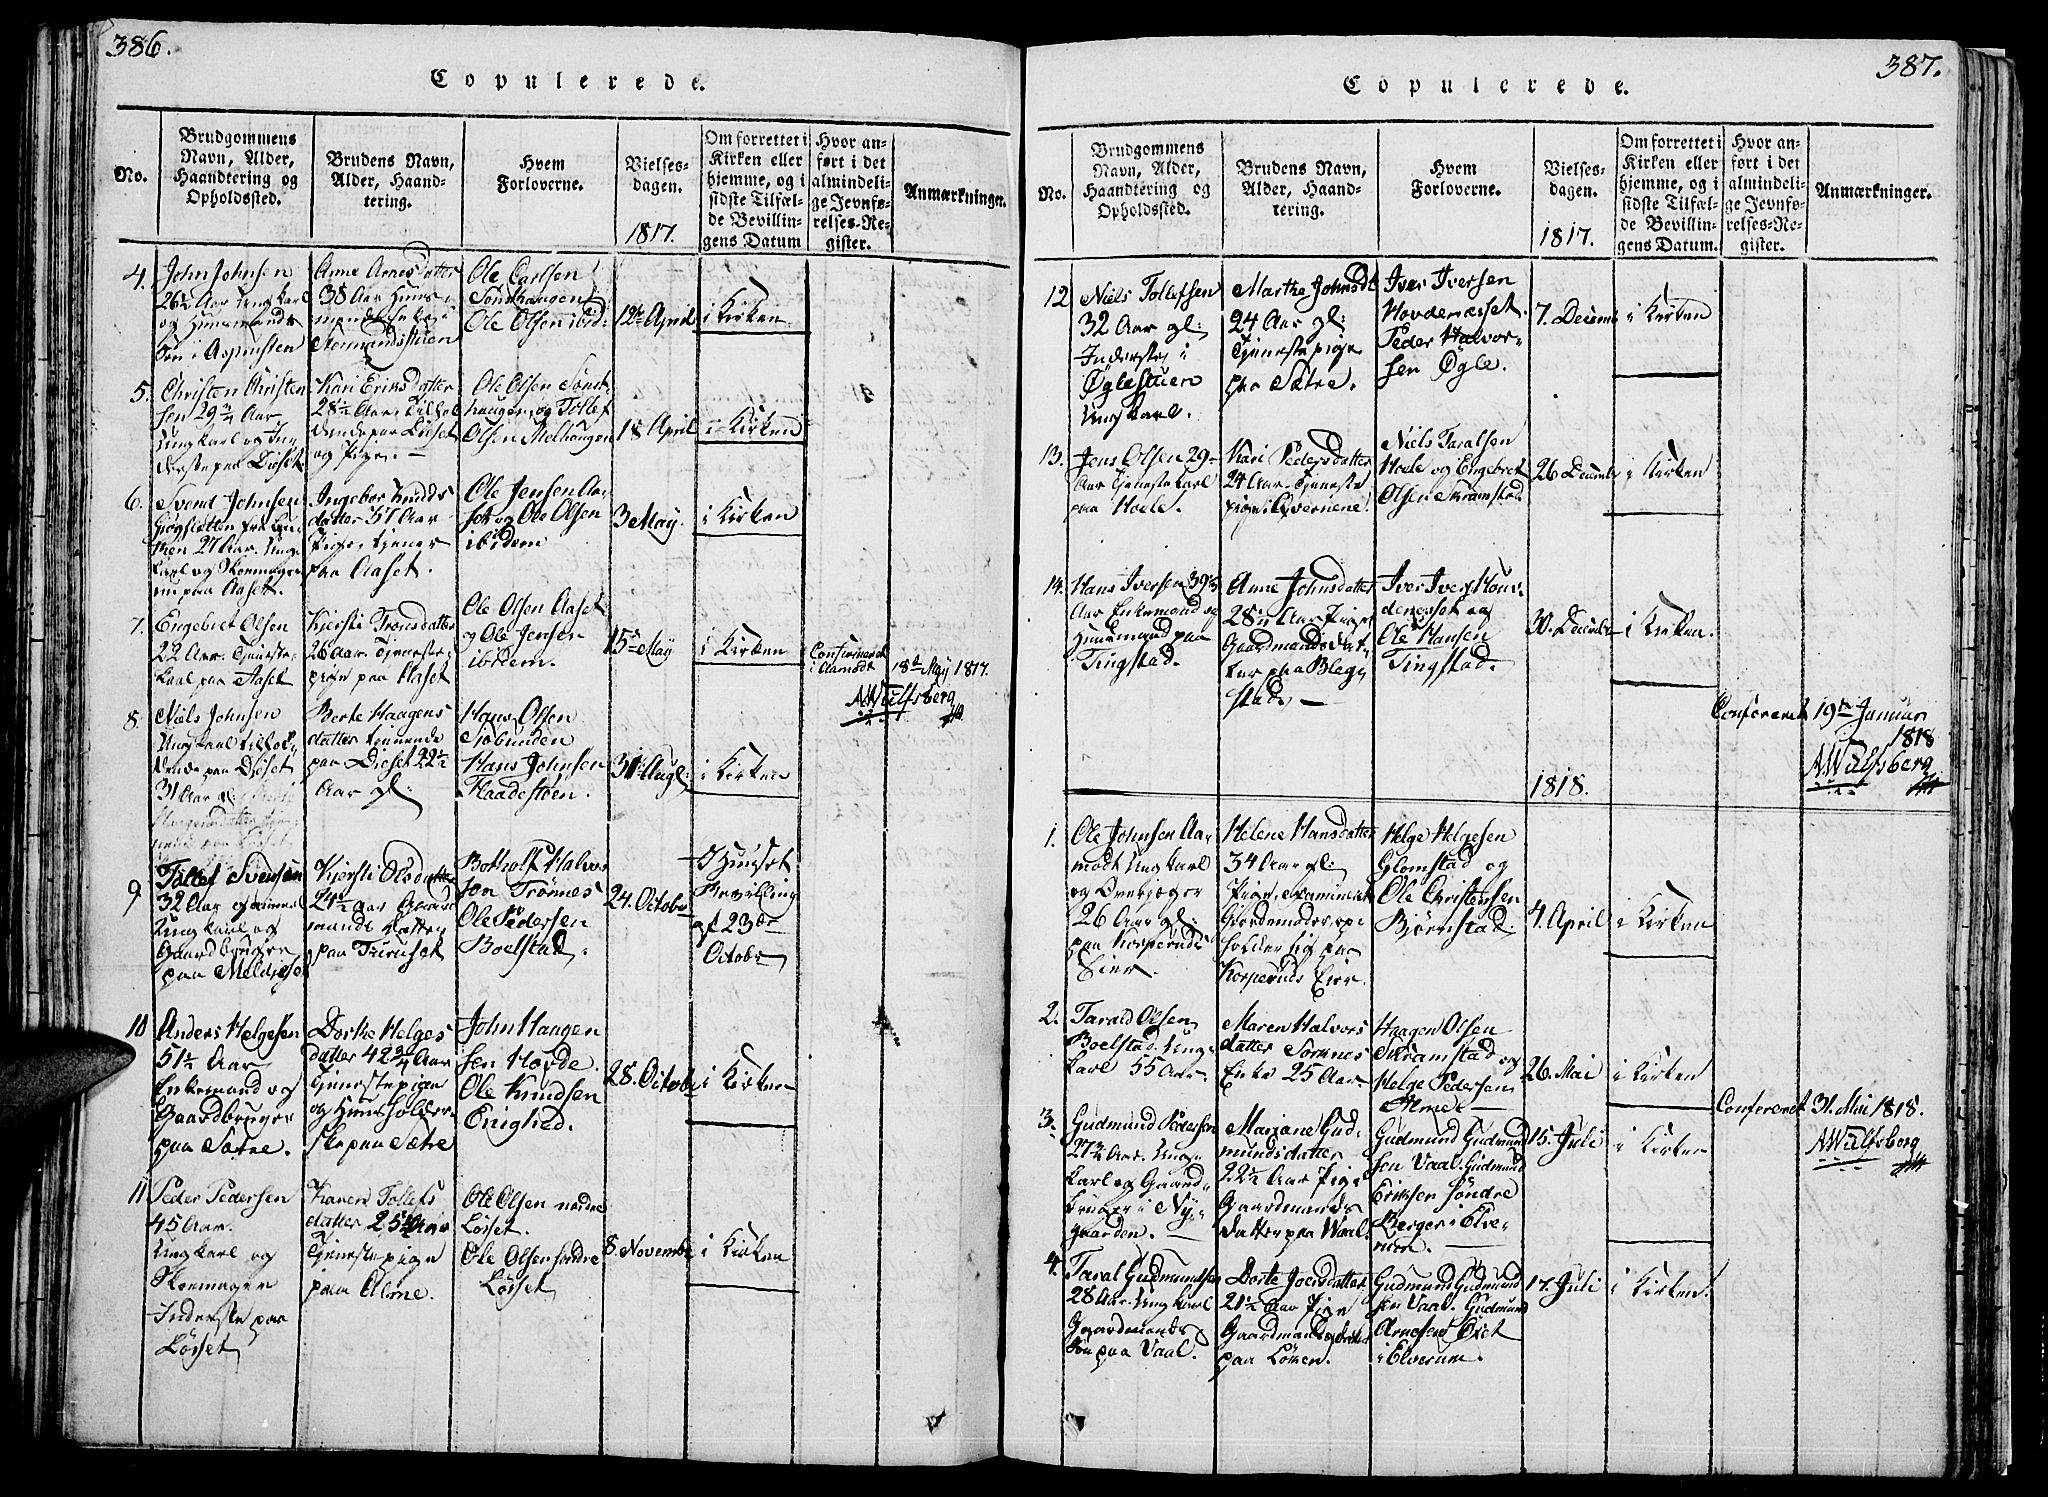 386.
Copulerede.
No.
Brudgommens
Navn, Alder,
Haandtering og
Opholdssted.
Brudens Navn,
Alder, Haand-
tering.
Hvem
Forloverne.
Vielses-
dagen.
1817.
Om forrettet i
Kirken eller
hjemme, og i
sidste Tilfæl-
de Bevillin-
gens Datum
Hvor an-
ført i det
almindeli-
ge Jevnfø-
relses-Re-
gister.
Anmærkninger.
4.
John Johnsen
26½ Aar Ungkarl
og Huusmands
Søn i
Anne Arnesdatter
38 Aar Huus-
mands Enke i
Ole Carlsen
Ole Olsen ibid:
12te April
i Kirken
5.
Christen Christen
sen 29¾ Aar
Ungkarl og In-
derste paa Diset
Kari Eriksdatter
28½ Aar, tilhol
dende paa Løset
og Pige. —
Ole Olsen Sønst
haugen, og Tollef
Olsen Melhaugen
18 April
i Kirken
6.
Svend Johnsen
27 Aar. Ung-
karl og Skomager
paa Aaset.
Ingebor Knuds
datter 37 Aar
Pige, tjener
paa Aaset.
Ole Jensen Aa-
set og Ole Olsen
ibidem
3 May.
i Kirken
7.
Engebret Olsen
22 Aar. Tjeneste-
karl paa Aaset
Kjersti Tronsdatter
26 Aar. Tjeneste-
pige paa Aaset
Ole Olsen Aaset
og Ole Jensen
ibidem.
15de May
i Kirken
Confirmeret
i Aamodt 18de May 1817.
A.Wulfsberg
8.
Niels Johnsen
Ungkarl tilhol-
dende paa Diset
31 Aar gl:
Berte Haagens
datter tjenende
paa Diset 22½
Aar gl:
Hans Olsen
Sjøbunden
Hans Johnsen
Flaadestøen.
31 Augl:
i Kirken
9
Tollef Svensen
32 Aar gammel
Ungkarl og
Gaardbruger
paa Meldiset
Kjersti Olsdatter
24½ Aar Gaard
mands Datter
paa
Botholf Halvor
sen Trønnes
Ole Pedersen
Boelstad.
24. Octobr
I Huuset
Bevilling
af 23de
Octobr
10
Anders Helgesen
51½ Aar
Enkemand og
Gaardbruger
paa Sætre.
Dorthe Helges
datter 42¾ Aar
Tjenestepige
og Huusholder-
ske paa Sætre
John Haagen
sen Hovde.
Ole Knudsen
28. Octobr
i Kirken
11
Peder Pedersen
45 Aar.
Ungkarl og
Skomager
Inderste paa
Løsset
Karen Tollefs
datter 25¾ Aar
Tjenestepige
paa Alme.
Ole Olsen nedre
Løsset.
Ole Olsen søndre
Løsset
8. Novembr
i Kirken
387.
Copulerede.
No.
Brudgommens
Navn, Alder,
Haandtering og
Opholdssted.
Brudens Navn,
Alder, Haand-
tering.
Hvem
Forloverne.
Vielses-
dagen.
1817.
Om forrettet i
Kirken eller
hjemme, og i
sidste Tilfæl-
de Bevillin-
gens Datum.
Hvor an-
ført i det
almindeli-
ge Jevnfø-
relses-Re-
gister.
Anmærkninger.
12
Niels Tollefsen
32 Aar gl:
Inderste i
Øglestuen
Ungkarl.
Marthe Johnsdt
24 Aar gl:
Tjenestepige
paa Sætre.
Iver Iversen
Hovdenæsset.
Peder Halvor-
sen Øgle.
7. Decembr
i Kirken
13.
Jens Olsen 29-
Aar Tjenestekarl
paa Hoele.
Kari Pedersdatter
24 Aar. Tjeneste
pige i Qvernene.
Niels Taralsen
Hoele og Engebret
Olsen Skramstad
26 Decembr
i Kirken
14.
Hans Iversen 39¾
Aar Enkemand og
Huusmand paa
Tingstad.
Anne Johnsdatter
28 Aar Pige
Gaardmands Dat-
ter paa Bleg-
stad. —
Iver Ivers Hov-
denesset og
Ole Hansen
Tingstad.
30. Decembr
i Kirken.
Confereret 19de Januar
1818
A.Wulfsberg
1818.
1.
Ole Johnsen Aa-
modt Ungkarl
og Dyrejæger
26 Aar gl:
paa Korperuds
Eier.
Helene Hansdatter
34 Aar gl:
Pige, examineret
Gjordemoder op-
holder sig paa
Korperuds Eier.
Helge Helgesen
Glomstad og
Ole Christensen
Bjørnstad.
4. April
i Kirken
2.
Tarald Olsen
Boelstad. Ung-
karl 55 Aar.
Maren Halvors
datter Sorknes
Enke 25 Aar
Haagen Olsen
Skramstad og
Helge Pedersen
Alme. —
26. Mai
i Kirken
Confereret 31. Mai 1818.
A.Wulfsberg
3.
Gudmund Pedersen
27¾ Aar. Ung-
karl og Gaard-
bruger i Ny-
gaarden. —
Mariane Gud-
mundsdatter
22½ Aar Pige
Gaardmands
datter paa Waal.
Gudmund Gudmund
sen Vaal. Gudmund
Eriksen Søndre
Berger i Elve-
rum. —
15. Juli
i Kirken
4.
Taral Gudmundsen
28 Aar. Ungkarl
Gaardmands
Søn paa Vaal.
Dorte Joensdatter
21½ Aar Pige
Gaardmandsdatter
paa Løken.
Gudmund Gudmund
sen Vaal. Gudmund
Arnesen Øxet
i Elverum.
17. Juli
i Kirken.